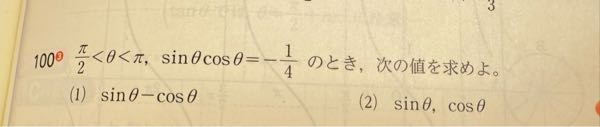 3
100③ π/2<θ<π, sinθcosθ=-1/4 のとき，次の値を求めよ。
(1) sinθ-cosθ (2) sinθ, cosθ